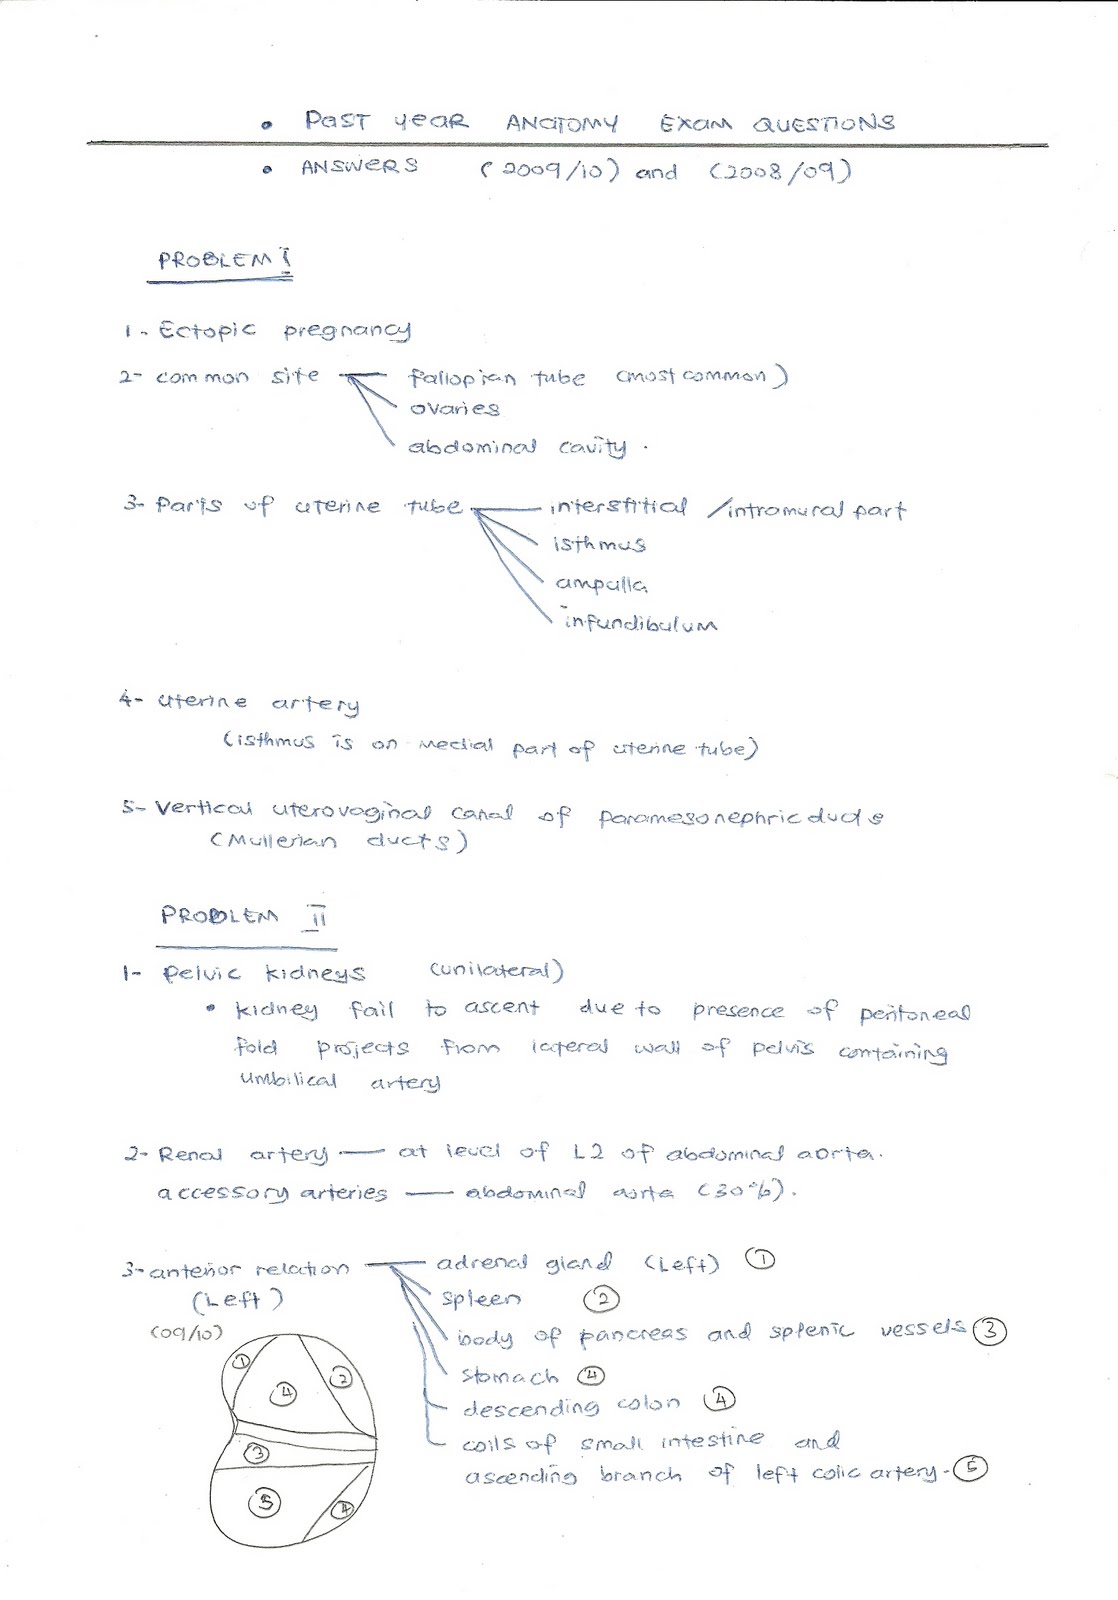 • Past year ANATOMY Exam QUESTIONS
• ANSWERS (2009/10) and (2008/09)
PROBLEM I
1- Ectopic pregnancy
2- common site fallopian tube (most common)
ovaries
abdominal cavity.
3- Parts of uterine tube interstitial /intramural part
isthmus
ampulla
infundibulum
4- uterine artery
(isthmus is on medial part of uterine tube)
5- Vertical uterovaginal canal of paramesonephric ducts
(Mullerian ducts)
PROBLEM II
1- pelvic kidneys (unilateral)
• kidney fail to ascent due to presence of peritoneal
fold projects from lateral wall of pelvis containing
umbilical artery
2- Renal artery — at level of L2 of abdominal aorta.
accessory arteries — abdominal aorta (30%).
3- anterior relation adrenal gland (Left) 1
(Left) spleen 2
(09/10) body of pancreas and splenic vessels 3
stomach 4
descending colon 4
coils of small intestine and
ascending branch of left colic artery. 5
1
2
4
3
5
4